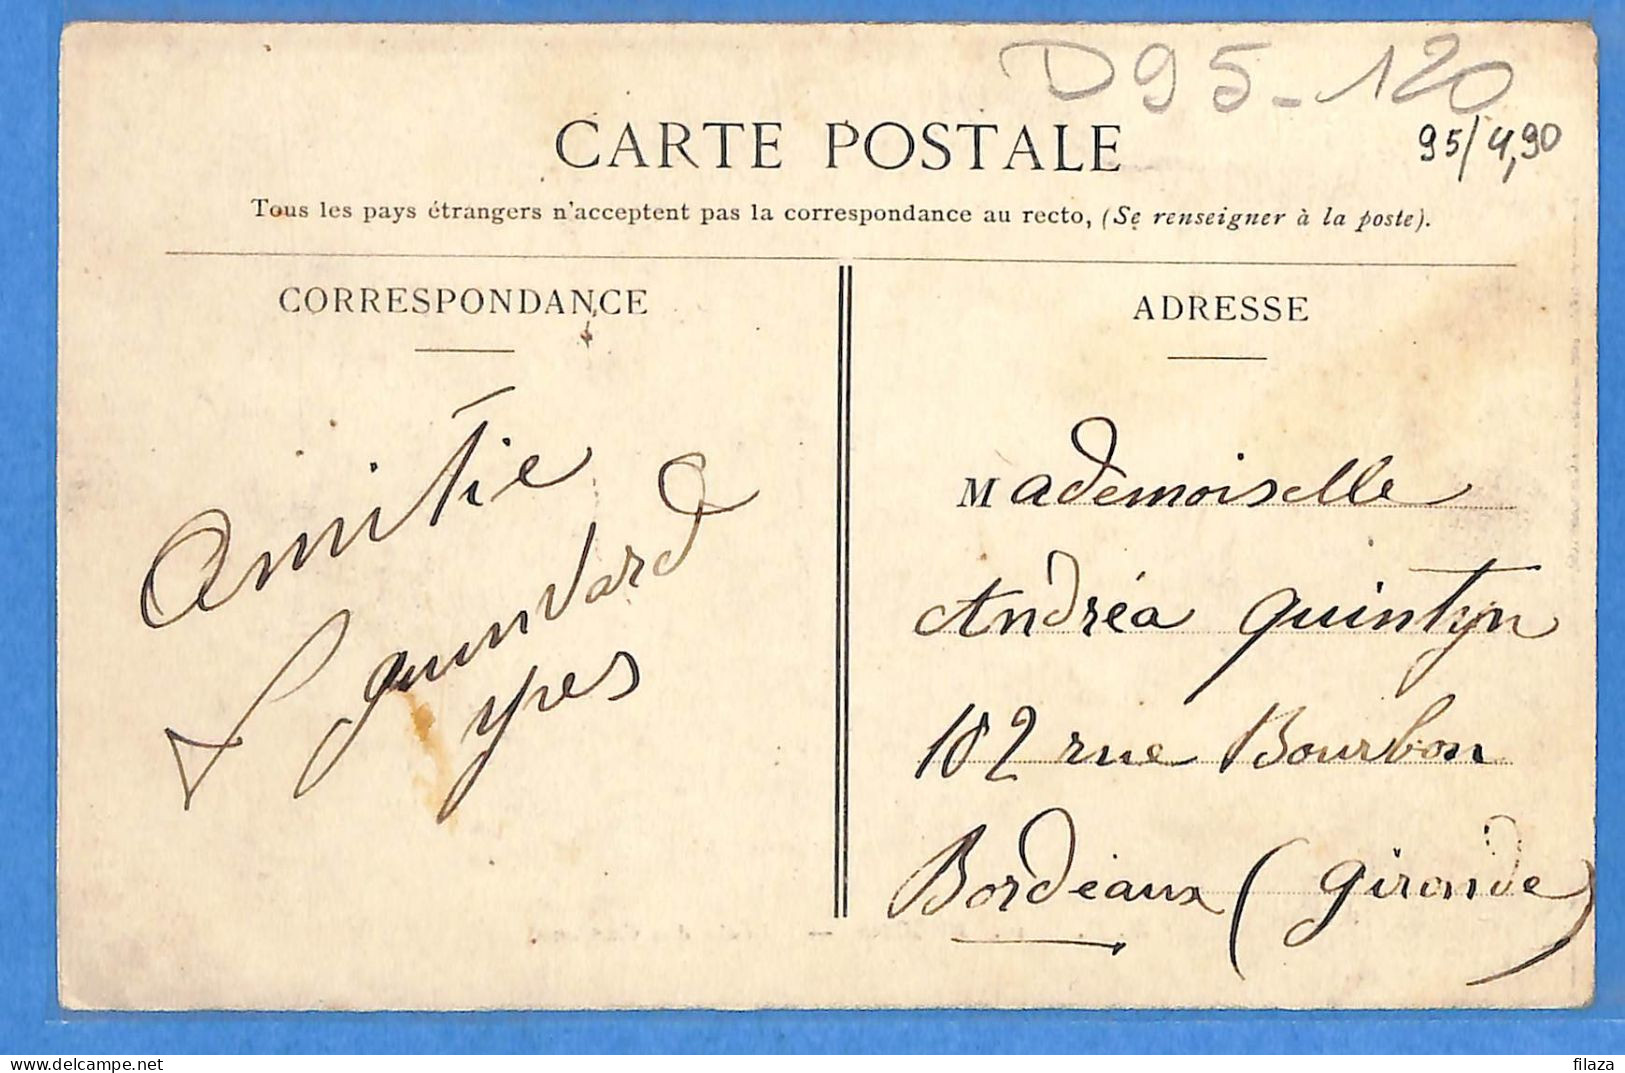 D95-120
CARTE POSTALE
95/4,90
Tous les pays étrangers n'acceptent pas la correspondance au recto, (Se renseigner à la poste).
CORRESPONDANCE
Amitié
ADRESSE
Mademoiselle
Andréa Quintyn
102 rue Bourbon
Bordeaux (Gironde)
filaza